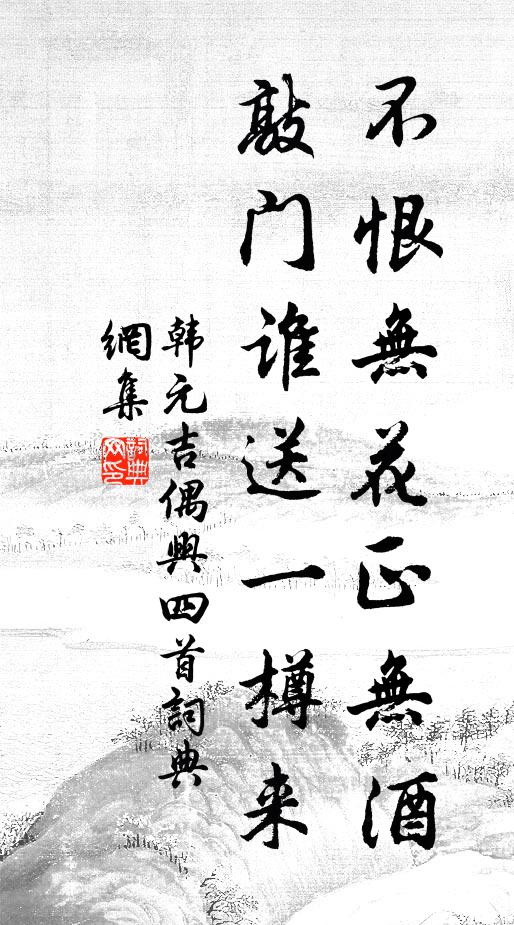 不恨無花正無酒
敲门谁送一樽来
韩元吉偶興四首詞典
網集
詞典网印